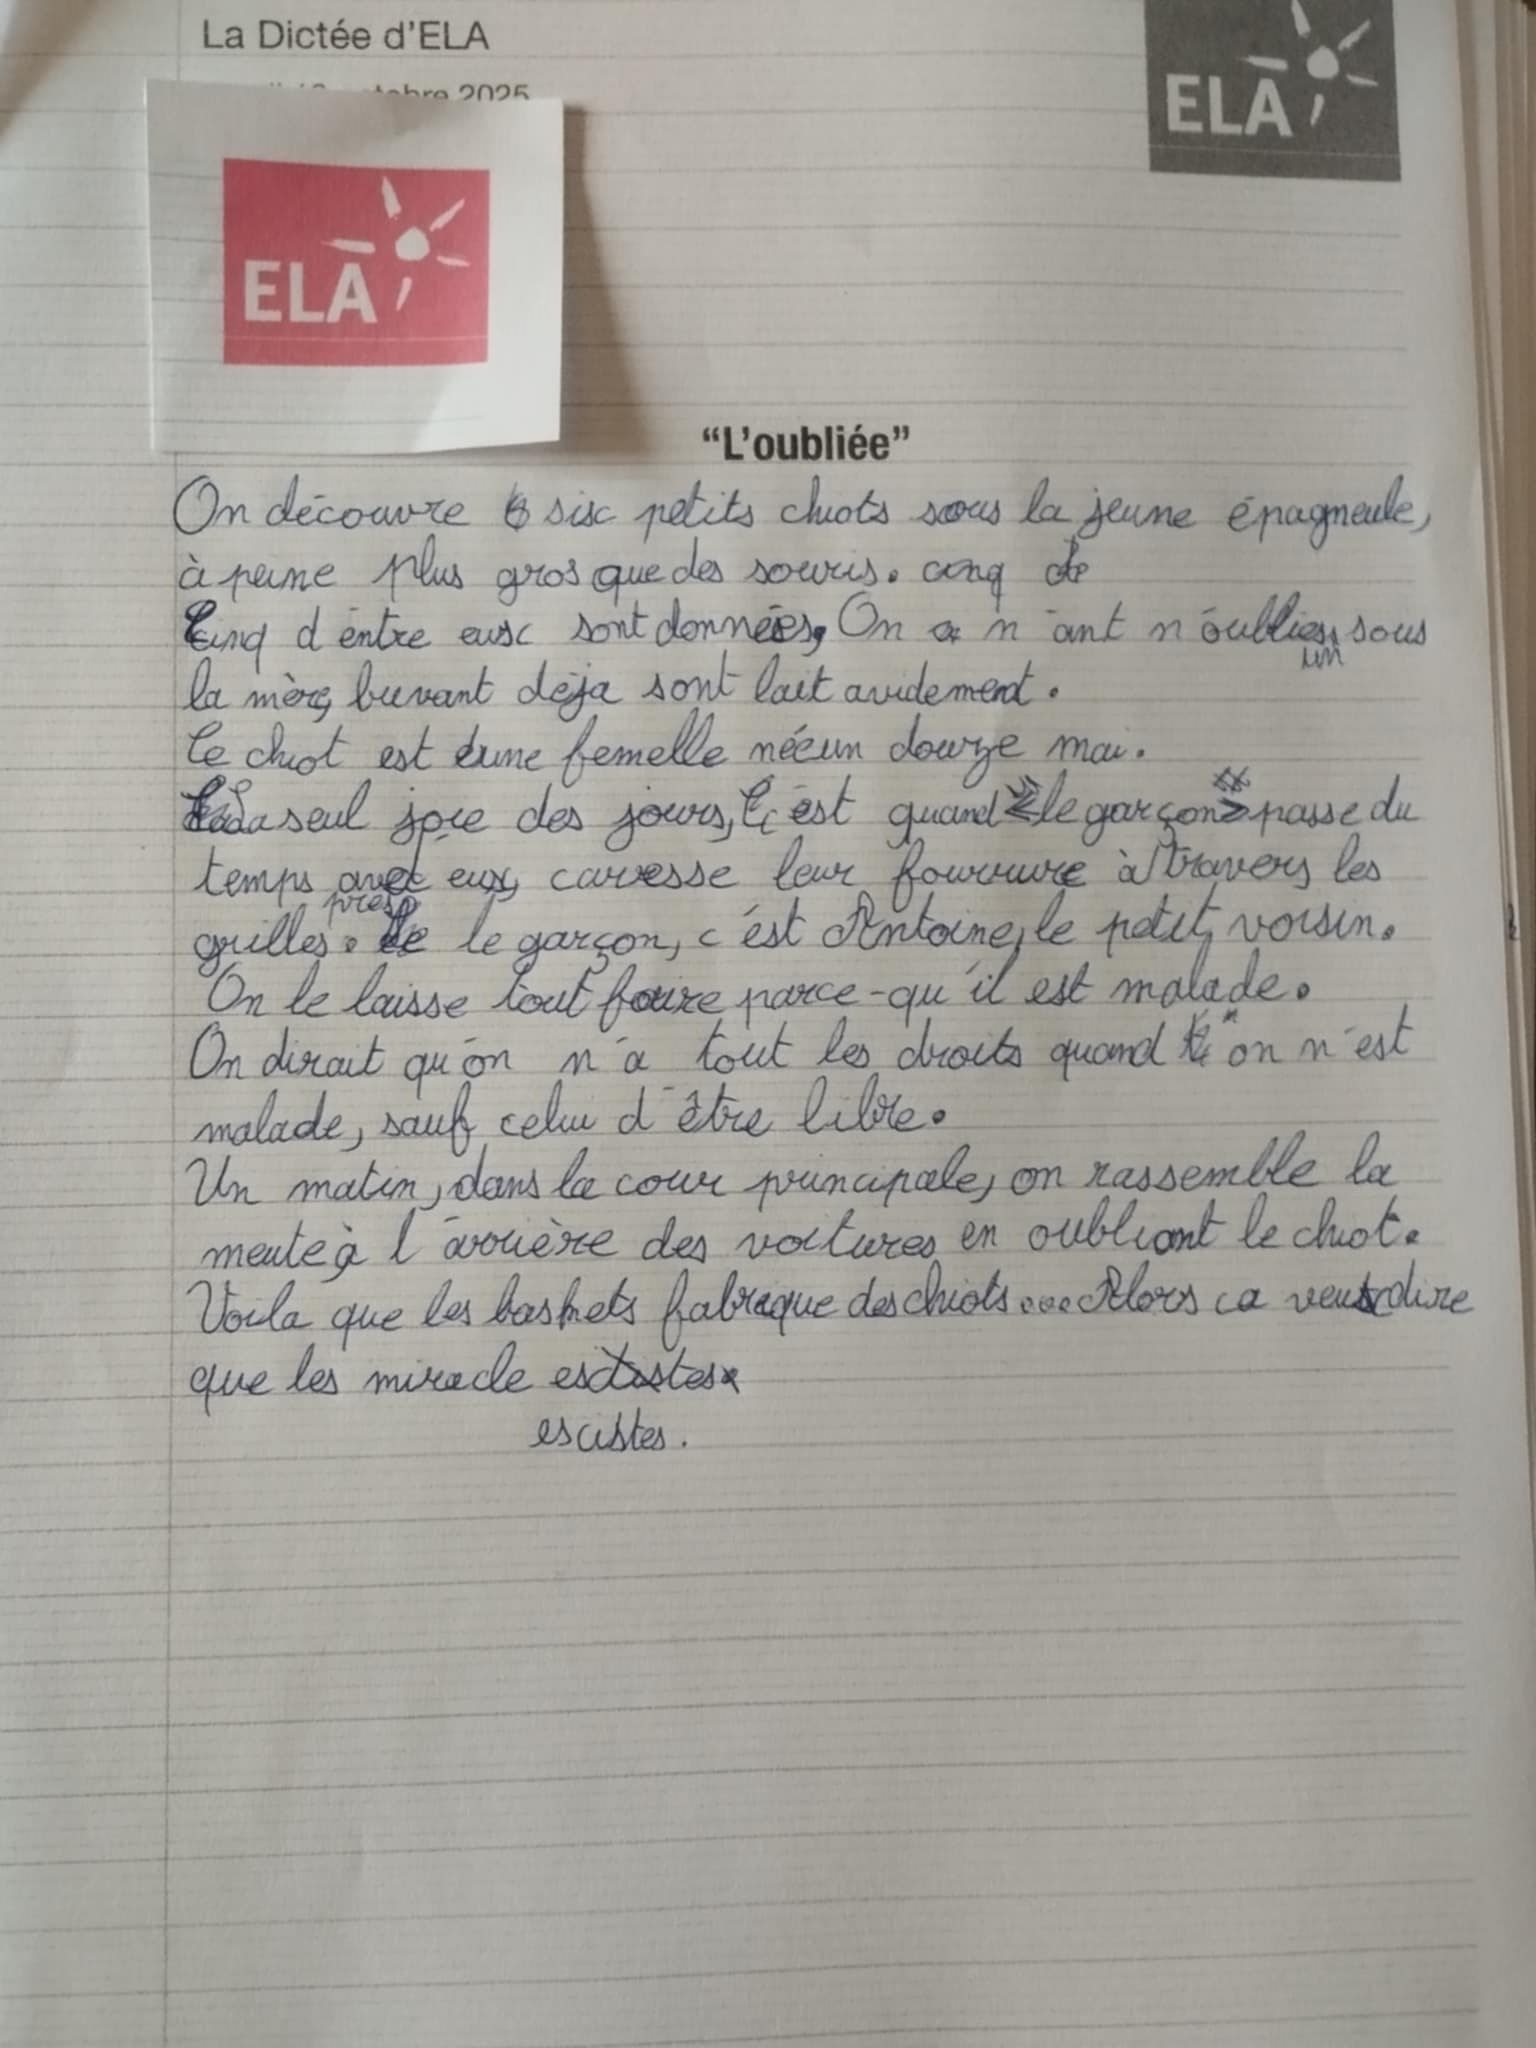 La Dictée d'ELA
octobre 2025
ELA
ELA
“L'oubliée”
On découvre 6 six petits chiots sous la jeune épagneule,
à peine plus gros que des souris. cinq de
Cinq d'entre eux sont données. On n'ant n'oublies un sous
la mère, buvant déja sont lait avidement.
Ce chiot est une femelle née un douze mai.
La seul joie des jours, C'est quand le garçon passe du
temps avec eux, caresse leur fourrure à travers les
grilles. près le garçon, c'est Antoine, le petit voisin.
On le laisse tout faire parce-qu'il est malade.
On dirait qu'on n'a tout les droits quand on n'est
malade, sauf celui d'être libre.
Un matin, dans la cour principale, on rassemble la
meute à l'arrière des voitures en oubliant le chiot.
Voila que les baskets fabrique des chiots... Alors ca veut dire
que les miracle existes.
escistes.